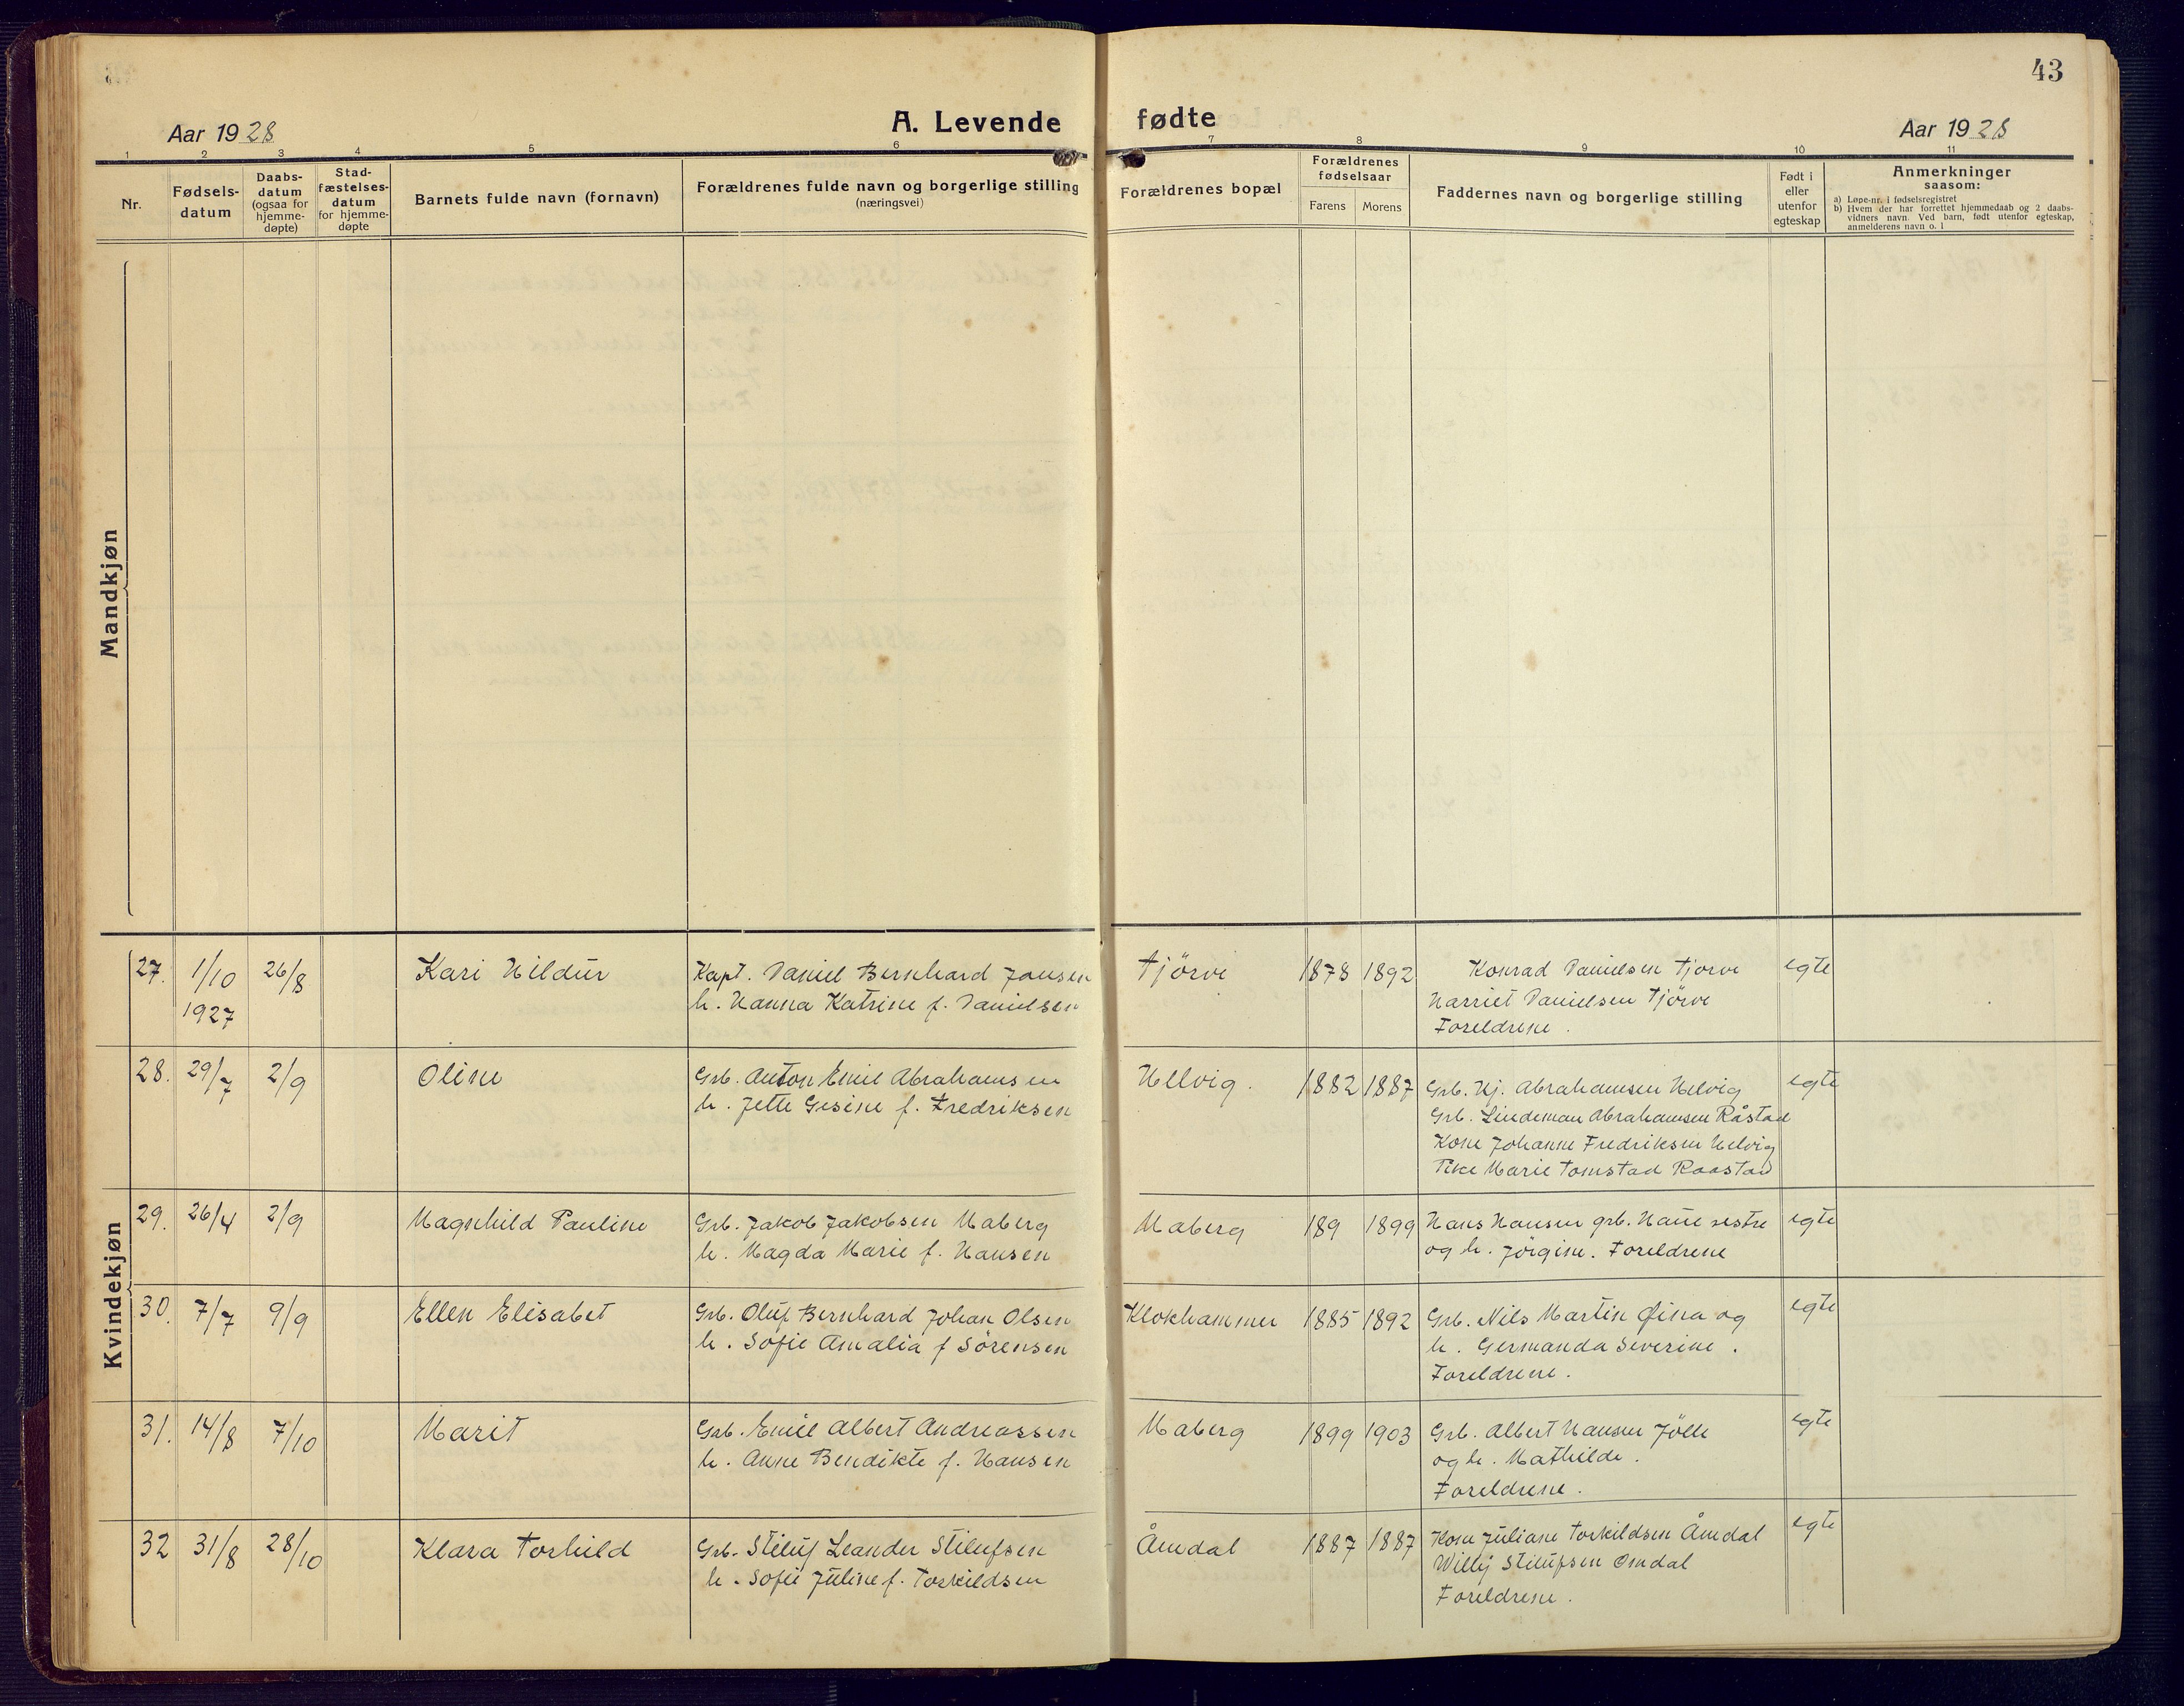 43
Aar 1928
A. Levende fødte
Aar 1928
1 2 3 4 5 6 7 8 9 10 11
Nr.
Fødsels-
datum
Daabs-
datum
(ogsaa for
hjemme-
døpte)
Stad-
fæstelses-
datum
for hjemme-
døpte
Barnets fulde navn (fornavn)
Forældrenes fulde navn og borgerlige stilling
(næringsvei)
Forældrenes bopæl
Forældrenes
fødselsaar
Farens Morens
Faddernes navn og borgerlige stilling
Født i
eller
utenfor
egteskap
Anmerkninger
saasom:
a) Løpe-nr. i fødselsregistret
b) Hvem der har forrettet hjemmedaab og 2 daabs-
vidners navn. Ved barn, født utenfor egteskap,
anmelderens navn o. l
Mandkjøn
Kvindekjøn
27. 1/10 1927 26/8 Kari Hildur
Kapt. Daniel Bernhard Jansen
h. Hanna Katrine f. Danielsen
Tjörve 1878 1892
Konrad Danielsen Tjorve
Harriet Danielsen Tjörve
Foreldrene.
egte
28. 29/7 2/9 Oline
Grb. Anton Emil Abrahamsen
h. Jette Gesine f. Fredriksen
Hellvig. 1882 1887
Grb. Hj. Abrahamsen Helvig
Grb. Lindeman Abrahamsen Råstad
Kone Johanne Fredriksen Helvig
Pike Marie Tomstad Raastad
egte
29. 26/4 2/9 Magnhild Pauline
Grb. Jakob Jakobsen Maberg
h. Magda Marie f. Hansen
Maberg 189 1899
Hans Hansen grb. Haüe
og h. Jörgine. Foreldrene
egte
30. 7/7 9/9 Ellen Elisabet
Grb. Oluf Bernhard Johan Olsen
h. Sofie Amalia f Sörensen
Klokhammer 1885 1892
Grb. Nils Martin Øina og
h. Germanda Severine.
Foreldrene.
egte
31. 14/8 7/10 Marit
Grb. Emil Albert Andreassen
h. Anne Bendikte f. Hansen
Maberg 1899 1903
Grb. Albert Hansen Jölle
og h. Mathilde.
Foreldrene.
egte
32 31/8 28/10 Klara Torhild
Grb. Steluf Leander Stilufsen
h. Sofie Juline f. Torkildsen
Åmdal 1887 1887
Kone Juliane Torkildsen Åmdal
Willy Stilufsen Omdal
Foreldrene.
egte